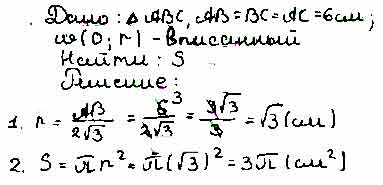 Дано: △ ABC, AB = BC = AC = 6 см;
(O; r) - вписанный
Найти: S
Решение:
1. r = AB/2√3 = 6³/2√3 = 3√3/3 = √3 (см)
2. S = πr² = π(√3)² = 3π (см²)